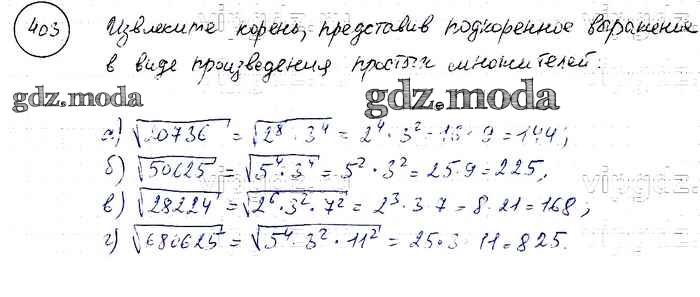 403 Извлеките корень, представив подкоренное выражение
в виде произведения простых множителей.
gdz.moda gdz.moda
а) √20736 = √2⁸ · 3⁴ = 2⁴ · 3² = 16 · 9 = 144;
б) √50625 = √5⁴ · 3⁴ = 5² · 3² = 25 · 9 = 225;
в) √28224 = √2⁶ · 3² · 7² = 2³ · 3 · 7 = 8 · 21 = 168;
г) √680625 = √5⁴ · 3² · 11² = 25 · 3 · 11 = 825.